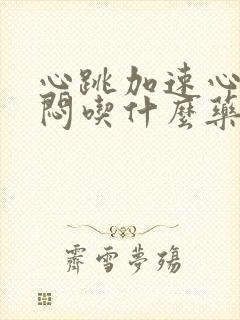 心跳加速心
悶喫什麼藥
霽雪夢殤